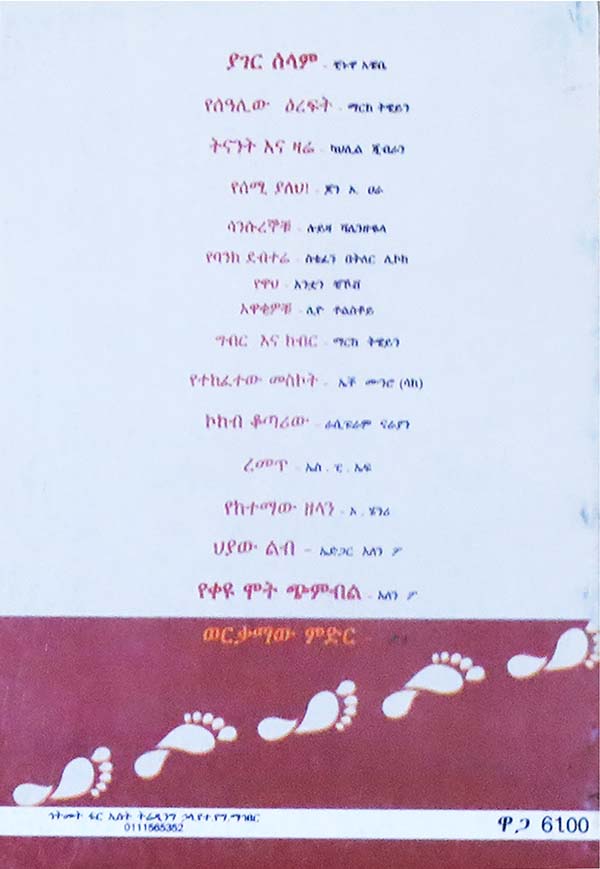 ያገር ሰላም - ቺኑዋ አቼቤ
የሰዓሊው ዕረፍት - ማርክ ትዌይን
ትናንት እና ዛሬ - ካህሊል ጂብራን
የሰሚ ያለህ! - ጆን ኦ. ሀራ
ሳንሱረኞቹ - ሉይዛ ቫሌንዙዌላ
የባንክ ደብተሬ - ስቴፈን በትለር ሊኮክ
የዋህ - አንቷን ቼኾቭ
አዋቂዎቹ - ሊዮ ቶልስቶይ
ግብር እና ክብር - ማርክ ትዌይን
የተከፈተው መስኮት - ኤች መንሮ (ሳኪ)
ኮከብ ቆጣሪው - ራሲፑራም ናራያን
ረመጥ - ኤስ . ፒ . ኤፍ
የከተማው ዘላን - ኦ . ሄንሪ
ህያው ልብ - ኤድጋር አለን ፖ
የቀዩ ሞት ጭምብል - አለን ፖ
ወርቃማው ምድር -
ኅትመት ፋር ኢስት ትሬዲንግ ኃላ.የተ.የግ.ማኅበር
0111565352
ዋጋ 61.00